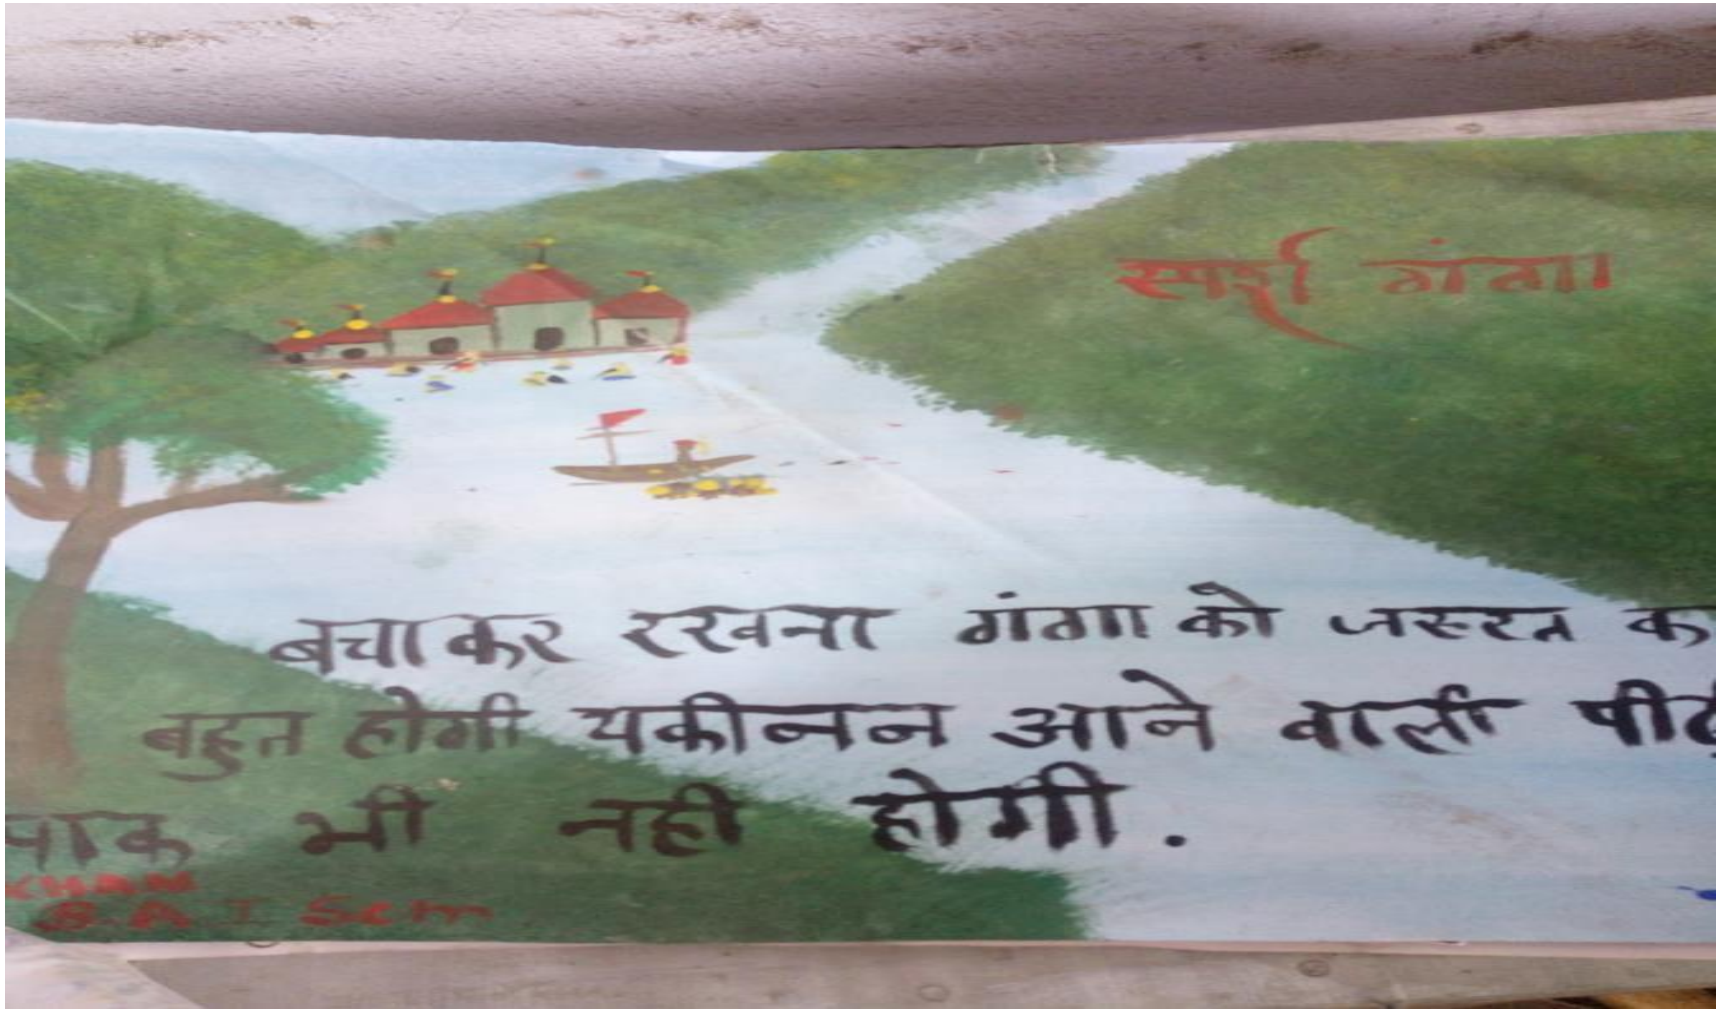 स्पर्श गंगा
बचाकर रखना गंगा को जरूरत क
बहुत होगी यकीनन आने वाली पीढ़
पाक भी नही होगी.
KHAN
B.A I Sem